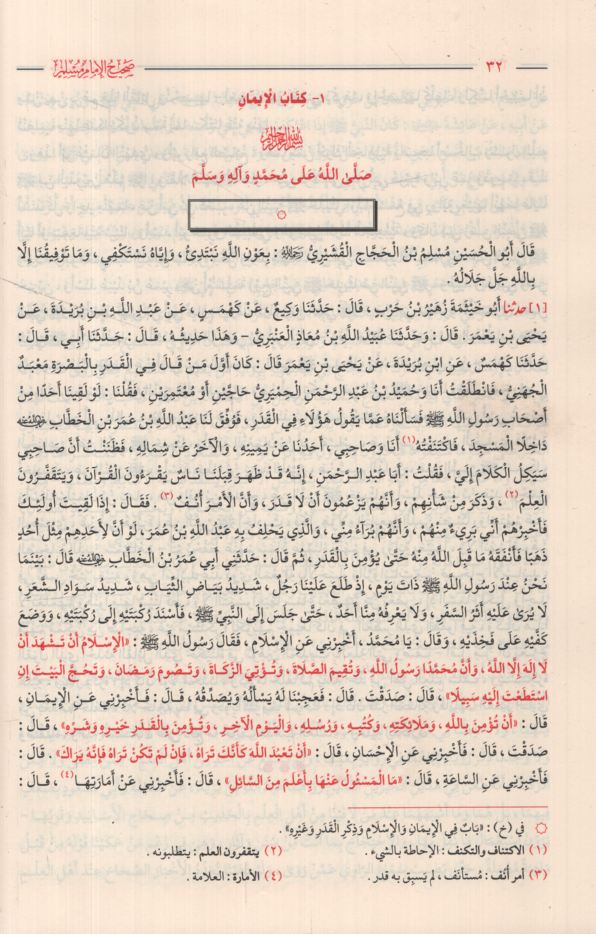 ٣٢ صحيح الإمام مسلم
١- كِتَابُ الْإِيمَانِ
بسم الله الرحمن الرحيم
صَلَّى اللَّهُ عَلَى مُحَمَّدٍ وَآلِهِ وَسَلَّمَ
۞
قَالَ أَبُو الْحُسَيْنِ مُسْلِمُ بْنُ الْحَجَّاجِ الْقُشَيْرِيُّ رَحِمَهُ اللهُ : بِعَوْنِ اللَّهِ نَبْتَدِئُ ، وَإِيَّاهُ نَسْتَكْفِي ، وَمَا تَوْفِيقُنَا إِلَّا
بِاللَّهِ جَلَّ جَلَالُهُ .
[١] حدثنا أَبُو خَيْثَمَةَ زُهَيْرُ بْنُ حَرْبٍ ، قَالَ : حَدَّثَنَا وَكِيعٌ ، عَنْ كَهْمَسٍ ، عَنْ عَبْدِ اللَّهِ بْنِ بُرَيْدَةَ ، عَنْ
يَحْيَى بْنِ يَعْمَرَ . قَالَ : وَحَدَّثَنَا عُبَيْدُ اللَّهِ بْنُ مُعَاذٍ الْعَنْبَرِيُّ - وَهَذَا حَدِيثُهُ ، قَالَ : حَدَّثَنَا أَبِي ، قَالَ :
حَدَّثَنَا كَهْمَسٌ ، عَنِ ابْنِ بُرَيْدَةَ ، عَنْ يَحْيَى بْنِ يَعْمَرَ قَالَ : كَانَ أَوَّلَ مَنْ قَالَ فِي الْقَدَرِ بِالْبَصْرَةِ مَعْبَدٌ
الْجُهَنِيُّ ، فَانْطَلَقْتُ أَنَا وَحُمَيْدُ بْنُ عَبْدِ الرَّحْمَنِ الْحِمْيَرِيُّ حَاجَّيْنِ أَوْ مُعْتَمِرَيْنِ ، فَقُلْنَا : لَوْ لَقِينَا أَحَدًا مِنْ
أَصْحَابِ رَسُولِ اللَّهِ ﷺ فَسَأَلْنَاهُ عَمَّا يَقُولُ هَؤُلَاءِ فِي الْقَدَرِ ، فَوُفِّقَ لَنَا عَبْدُ اللَّهِ بْنُ عُمَرَ بْنِ الْخَطَّابِ رضي الله عنهما
دَاخِلًا الْمَسْجِدَ ، فَاكْتَنَفْتُهُ(١) أَنَا وَصَاحِبِي ، أَحَدُنَا عَنْ يَمِينِهِ ، وَالْآخَرُ عَنْ شِمَالِهِ ، فَظَنَنْتُ أَنَّ صَاحِبِي
سَيَكِلُ الْكَلَامَ إِلَيَّ ، فَقُلْتُ : أَبَا عَبْدِ الرَّحْمَنِ ، إِنَّهُ قَدْ ظَهَرَ قِبَلَنَا نَاسٌ يَقْرَءُونَ الْقُرْآنَ ، وَيَتَقَفَّرُونَ
الْعِلْمَ(٢) ، وَذَكَرَ مِنْ شَأْنِهِمْ ، وَأَنَّهُمْ يَزْعُمُونَ أَنْ لَا قَدَرَ ، وَأَنَّ الْأَمْرَ أُنُفٌ(٣) . فَقَالَ : إِذَا لَقِيتَ أُولَئِكَ
فَأَخْبِرْهُمْ أَنِّي بَرِيءٌ مِنْهُمْ ، وَأَنَّهُمْ بُرَآءُ مِنِّي ، وَالَّذِي يَحْلِفُ بِهِ عَبْدُ اللَّهِ بْنُ عُمَرَ ، لَوْ أَنَّ لِأَحَدِهِمْ مِثْلَ أُحُدٍ
ذَهَبًا فَأَنْفَقَهُ مَا قَبِلَ اللَّهُ مِنْهُ حَتَّى يُؤْمِنَ بِالْقَدَرِ ، ثُمَّ قَالَ : حَدَّثَنِي أَبِي عُمَرُ بْنُ الْخَطَّابِ رضي الله عنه قَالَ : بَيْنَمَا
نَحْنُ عِنْدَ رَسُولِ اللَّهِ ﷺ ذَاتَ يَوْمٍ ، إِذْ طَلَعَ عَلَيْنَا رَجُلٌ ، شَدِيدُ بَيَاضِ الثِّيَابِ ، شَدِيدُ سَوَادِ الشَّعَرِ ،
لَا يُرَى عَلَيْهِ أَثَرُ السَّفَرِ ، وَلَا يَعْرِفُهُ مِنَّا أَحَدٌ ، حَتَّى جَلَسَ إِلَى النَّبِيِّ ﷺ ، فَأَسْنَدَ رُكْبَتَيْهِ إِلَى رُكْبَتَيْهِ ، وَوَضَعَ
كَفَّيْهِ عَلَى فَخِذَيْهِ ، وَقَالَ : يَا مُحَمَّدُ ، أَخْبِرْنِي عَنِ الْإِسْلَامِ ، فَقَالَ رَسُولُ اللَّهِ ﷺ : «الْإِسْلَامُ أَنْ تَشْهَدَ أَنْ
لَا إِلَهَ إِلَّا اللَّهُ ، وَأَنَّ مُحَمَّدًا رَسُولُ اللَّهِ ، وَتُقِيمَ الصَّلَاةَ ، وَتُؤْتِيَ الزَّكَاةَ ، وَتَصُومَ رَمَضَانَ ، وَتَحُجَّ الْبَيْتَ إِنِ
اسْتَطَعْتَ إِلَيْهِ سَبِيلًا» ، قَالَ : صَدَقْتَ . قَالَ : فَعَجِبْنَا لَهُ يَسْأَلُهُ وَيُصَدِّقُهُ ، قَالَ : فَأَخْبِرْنِي عَنِ الْإِيمَانِ ،
قَالَ : «أَنْ تُؤْمِنَ بِاللَّهِ ، وَمَلَائِكَتِهِ ، وَكُتُبِهِ ، وَرُسُلِهِ ، وَالْيَوْمِ الْآخِرِ ، وَتُؤْمِنَ بِالْقَدَرِ خَيْرِهِ وَشَرِّهِ» ، قَالَ :
صَدَقْتَ ، قَالَ : فَأَخْبِرْنِي عَنِ الْإِحْسَانِ ، قَالَ : «أَنْ تَعْبُدَ اللَّهَ كَأَنَّكَ تَرَاهُ ، فَإِنْ لَمْ تَكُنْ تَرَاهُ فَإِنَّهُ يَرَاكَ» . قَالَ :
فَأَخْبِرْنِي عَنِ السَّاعَةِ ، قَالَ : «مَا الْمَسْئُولُ عَنْهَا بِأَعْلَمَ مِنَ السَّائِلِ» ، قَالَ : فَأَخْبِرْنِي عَنْ أَمَارَتِهَا(٤) ، قَالَ :
۞ في (خ) : «بَابٌ فِي الْإِيمَانِ وَالْإِسْلَامِ وَذِكْرِ الْقَدَرِ وَغَيْرِهِ» .
(١) الاكتناف والتكنف : الإحاطة بالشيء . (٢) يتقفرون العلم : يتطلبونه .
(٣) أمر أنف : مُستأنَف ، لم يَسبِق به قدر . (٤) الأمارة : العلامة .